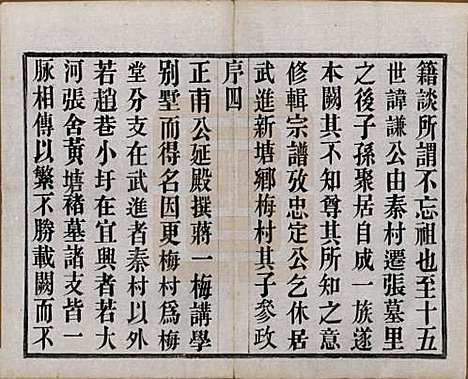 籍談所謂不忘祖也至十五
世諱謙公由秦村遷張墓里
之後子孫聚居自成一族遂
本闕其不知尊其所知之意
修輯宗譜攷忠定公乞休居
武進新塘鄉梅村其子參政
序四
正甫公延殿撰蔣一梅講學
別墅而得名因更梅村爲梅
堂分支在武進者秦村以外
若趙巷小圩在宜興者若大
河張舍黃塘褚墓諸支皆一
脉相傳以繁不勝載闕而不